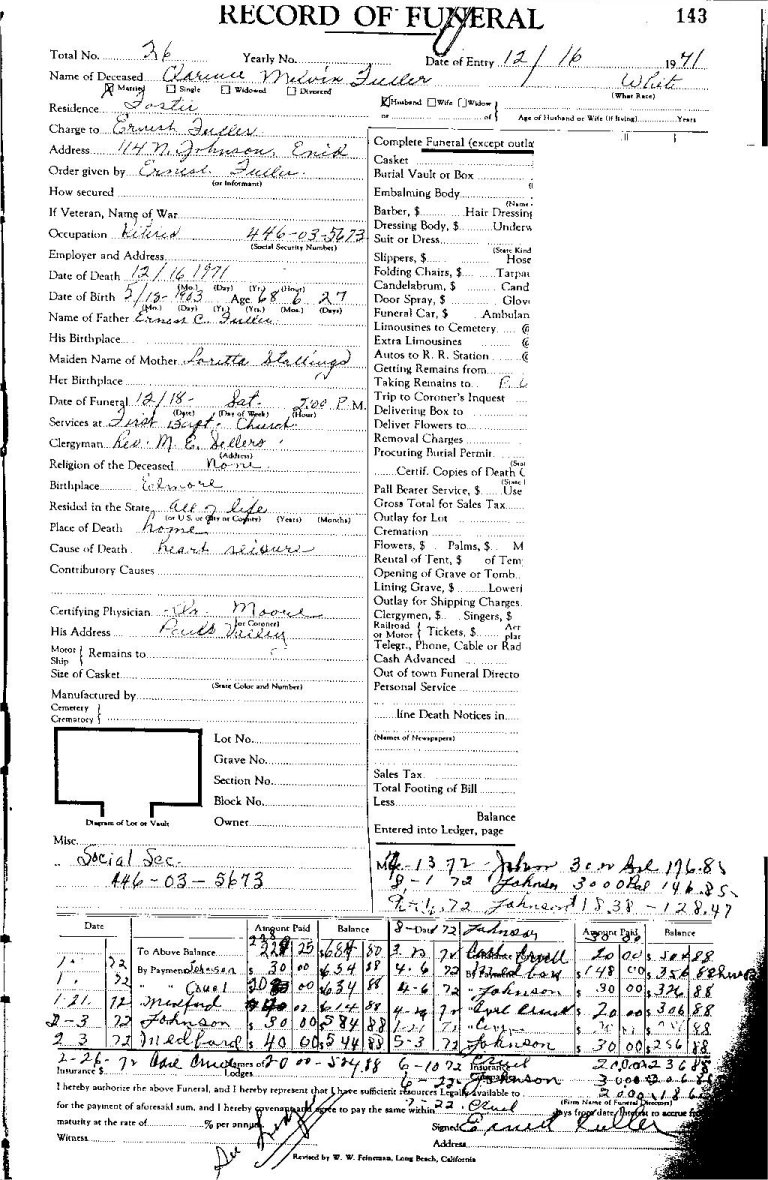 RECORD OF FUNERAL 143
Total No. 36 Yearly No. Date of Entry 12/16 1971
Name of Deceased Clarence Melvin Fuller White
Married Single Widowed Divorced (What Race)
Residence Foster Husband Wife Widow or of Age of Husband or Wife (if living) Years
Charge to Ernest Fuller
Address 114 N. Johnson, Enid
Order given by Ernest Fuller
(or Informant)
How secured
If Veteran, Name of War
Occupation Retired 446-03-5673
(Social Security Number)
Employer and Address
Date of Death 12/16 1971
(Mo.) (Day) (Yr.) (Hour)
Date of Birth 5/18-1903 Age 68 6 27
(Mo.) (Day) (Yr.) (Yrs.) (Mos.) (Days)
Name of Father Ernest C. Fuller
His Birthplace
Maiden Name of Mother Loretta Stallings
Her Birthplace
Date of Funeral 12/18- Sat. 2:00 P M.
(Date) (Day of Week) (Hour)
Services at First Bapt. Church
Clergyman Rev. M. E. Sellers
(Address)
Religion of the Deceased None
Birthplace Elmore
Resided in the State all of life
(or U.S. or City or County) (Years) (Months)
Place of Death home
Cause of Death heart seizure
Contributory Causes
Certifying Physician Dr. Moore
(or Coroner)
His Address Pauls Valley
Motor Ship Remains to
Size of Casket
(State Color and Number)
Manufactured by
Cemetery
Crematory
Lot No.
Grave No.
Section No.
Block No.
Diagram of Lot or Vault Owner
Misc.
Social Sec.
446-03-5673
Complete Funeral (except outla
Casket
Burial Vault or Box
Embalming Body
(Name
Barber, $ Hair Dressing
Dressing Body, $ Underw
Suit or Dress
(State Kind
Slippers, $ Hose
Folding Chairs, $ Tarpau
Candelabrum, $ Cand
Door Spray, $ Glov
Funeral Car, $ Ambulan
Limousines to Cemetery @
Extra Limousines @
Autos to R. R. Station @
Getting Remains from
Taking Remains to
Trip to Coroner's Inquest
Delivering Box to
Deliver Flowers to
Removal Charges
Procuring Burial Permit
(Stat
Certif. Copies of Death C
(State
Pall Bearer Service, $ Use
Gross Total for Sales Tax
Outlay for Lot
Cremation
Flowers, $ Palms, $ M
Rental of Tent, $ of Tem
Opening of Grave or Tomb
Lining Grave, $ Loweri
Outlay for Shipping Charges
Clergymen, $ Singers, $
Railroad or Motor Tickets, $ Aer plan
Telegr., Phone, Cable or Rad
Cash Advanced
Out of town Funeral Directo
Personal Service
line Death Notices in
(Names of Newspapers)
Sales Tax
Total Footing of Bill
Less
Balance
Entered into Ledger, page
13 72 - Johnson 30 00 Bal 176.85
8-1 72 Johnson 30 00 Bal 146.85
72 Johnson 18.38 - 128.47
Date Amount Paid Balance 8-Dec 72 Johnson Amount Paid Balance
72 To Above Balance 25 684 80
72 By Payment Johnson $ 30 00 $ 654 88
72 " " Cruel 634 88
1-21 72 Medford 614 88
2-3 72 Johnson $ 30 00 $ 584 88
2 3 72 Medford $ 40 00 $ 544 88
20 00 $ 504 88
4-6 72 $ 148 00 $ 356 88
4-6 72 " Johnson $ 30 00 $ 326 88
72 $ 20 00 $ 306 88
5-3 72 Johnson $ 30 00 $ 256 88
2-26-72 Earl Cruel 20 00 - 524 88 6-10 72 Cruel 20 00 236 88
Insurance $ Names of Lodges Insurance
6-22 Johnson 30 00 206 8
I hereby authorize the above Funeral, and I hereby represent that I have sufficient resources Legally available to
(Firm Name of Funeral Directors)
for the payment of aforesaid sum, and I hereby covenant and agree to pay the same within 7-22 Cruel days from date/Interest to accrue fr
maturity at the rate of % per annum Signed Ernest Fuller
Witness Address
See Ledger
Revised by W. W. Feineman, Long Beach, California